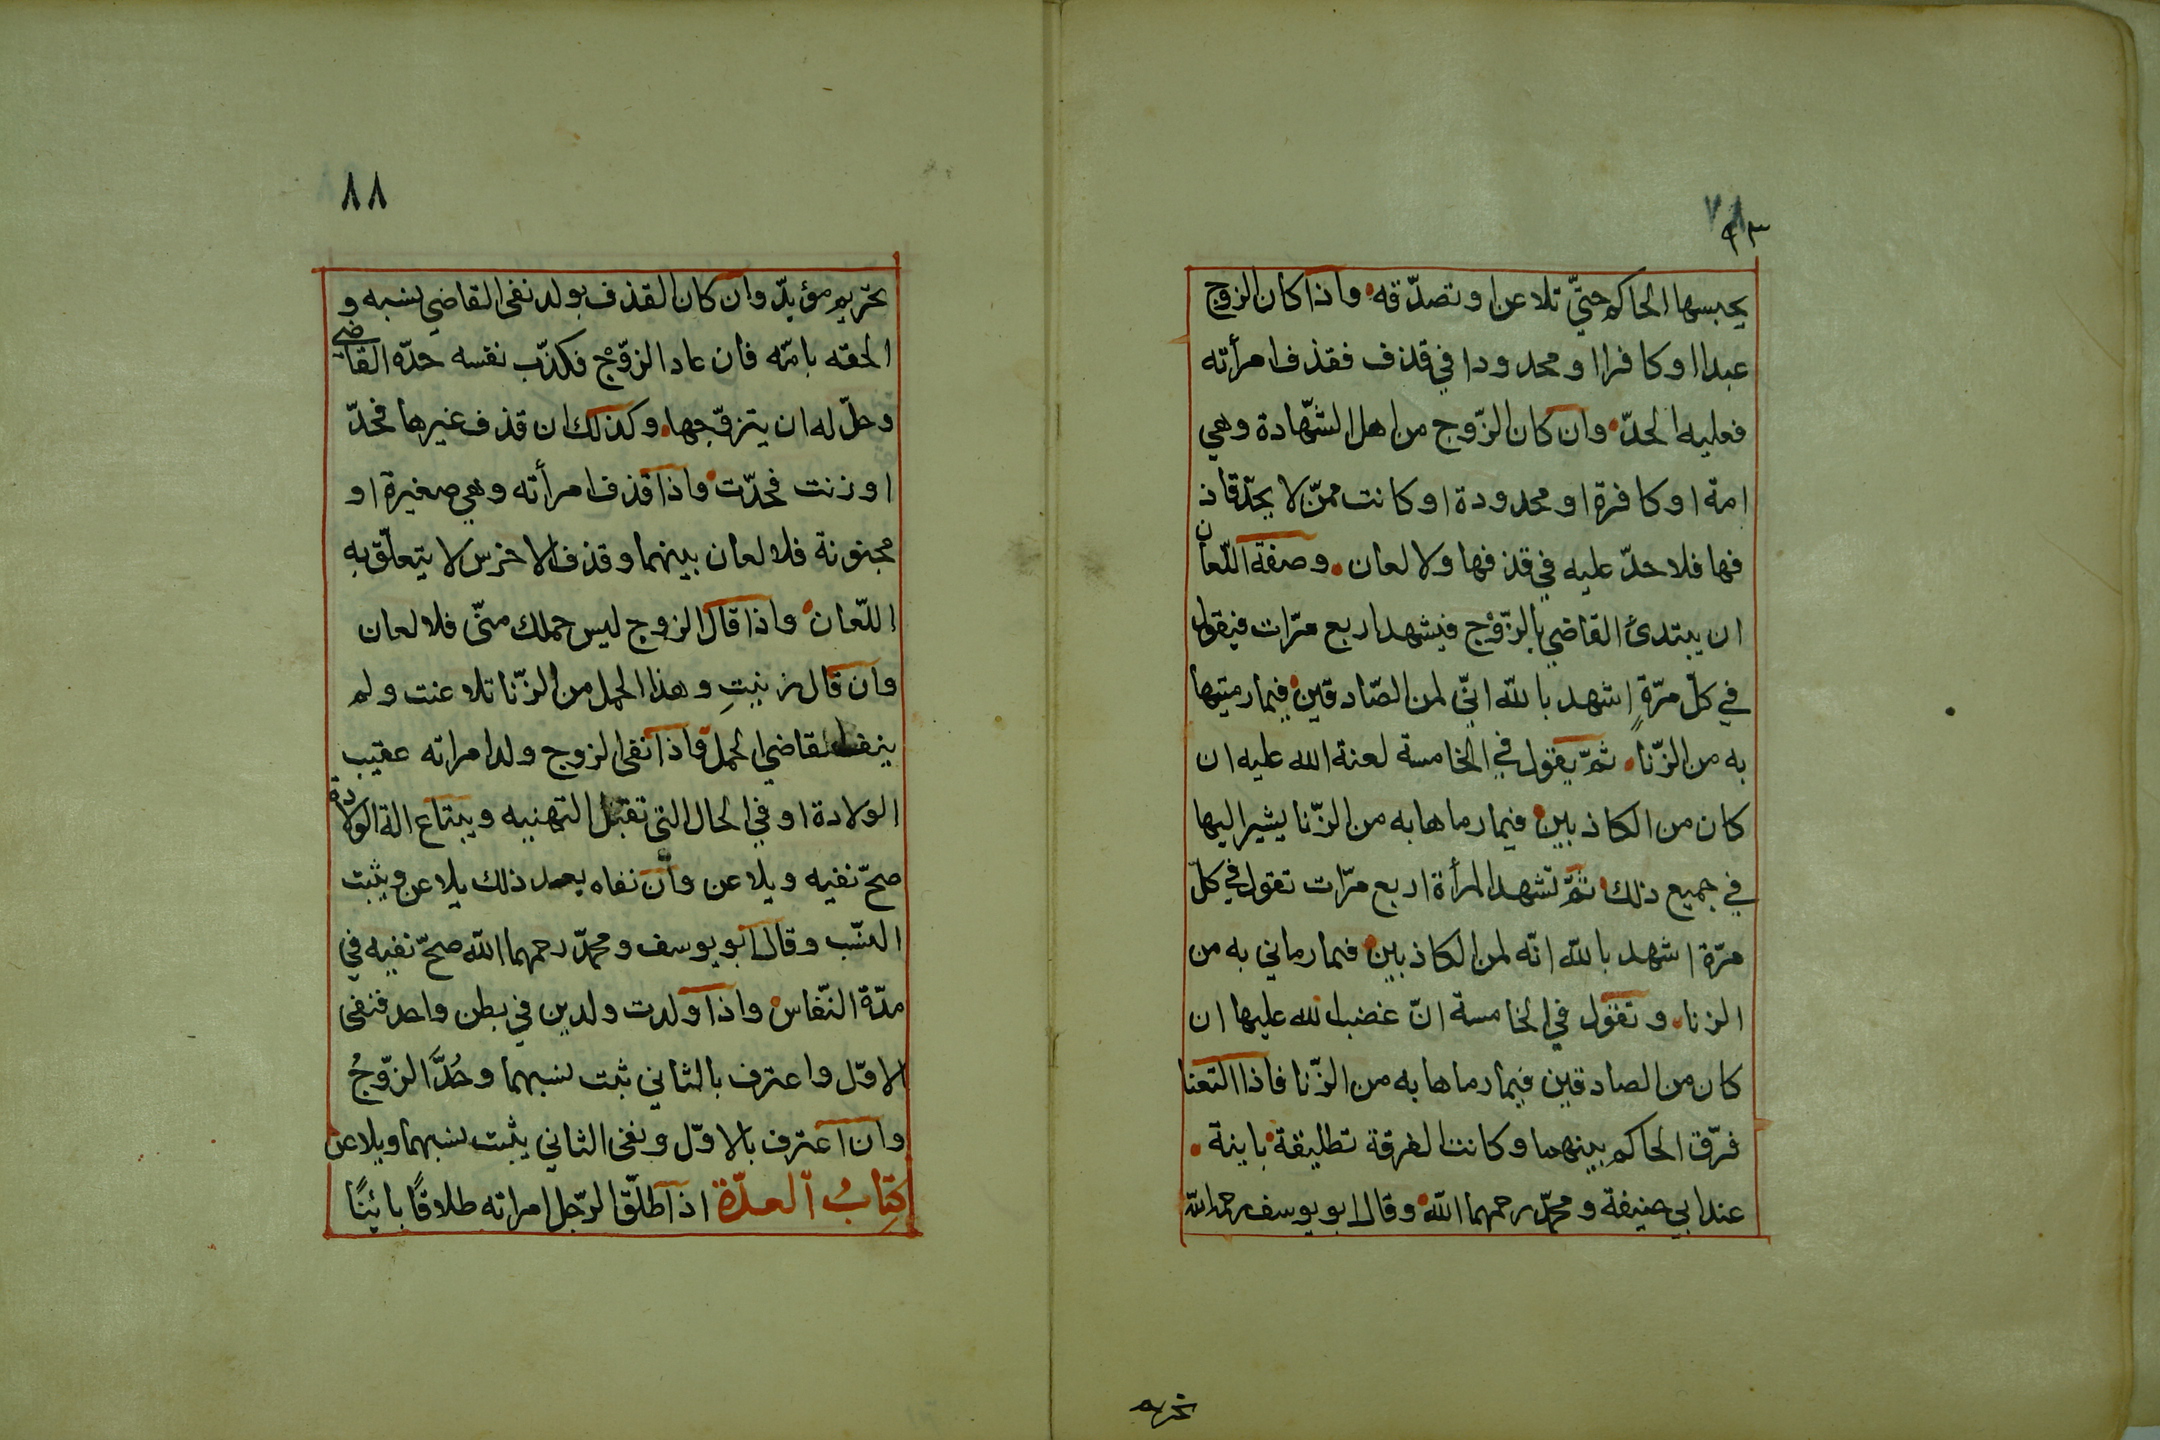 يحبسها الحاكم حتّي تلاعن او تصدّقه واذا كان الزوج
عبدا او كافرا او محدودا في قذف فقذف امرأته
فعليه الحدّ وان كان الزّوج من اهل الشّهادة وهي
امة او كافرة او محدودة او كانت ممّن لا يحدّ قاذ
فها فلا حدّ عليه في قذفها ولا لعان وصفة اللّعان
ان يبتدئ القاضي بالزّوْج فيشهد اربع مرّات فيقول
في كلّ مرّةٍ اشهد باللّه انّي لمن الصّادقين فيما رميتها
به من الزّنا ثمّ يقول في الخامسة لعنة الله عليه ان
كان من الكاذبين فيما رماها به من الزّنا يشير اليها
في جميع ذلك ثمّ تشهد المرأة اربع مرّات تقول في كلّ
مرّة اشهد باللّه انّه لمن الكاذبين فيما رماني به من
الزنا وتقول في الخامسة انّ غضب الله عليها ان
كان من الصادقين فيما رماها به من الزّنا فاذا التعنا
فرّق الحاكم بينهما وكانت الفرقة تطليقة باينة
عند ابي حنيفة ومحمّد رحمهما اللّه وقال ابو يوسف رحمه اللّه
تحريم
٨٨
تحريم مؤبدّ وان كان القذف بولد نفى القاضي نسبه و
الحقه بامّه فان عاد الزوّج فكذّب نفسه حدّه القاضي
وحلّ له ان يتزوّجها وكذلك ان قذف غيرها فحدّ
او زنت فحدّت واذا قذف امرأته وهي صغيرة او
مجنونة فلا لعان بينهما وقذف الاخرس لا يتعلّق به
اللّعان واذا قال الزوج ليس حملك منّى فلا لعان
وان قال زنيتِ وهذا الحمل من الزّنا تلاعنت ولم
ينف القاضي الحمل واذا نفى الزوج ولد امراته عقيب
الولادة او في الحال التي تقبل التهنيه ويبتاع الة الولادة
صحّ نفيه ويلاعن وان نفاه بعد ذلك يلاعن ويثبت
النسّب وقال ابو يوسف ومحمّد رحمهما اللّه صحّ نفيه في
مدّة النّفاس واذا ولدت ولدين في بطن واحد فنفى
الاوّل واعترف بالثاني ثبت نسبهما وحُدَّ الزّوجُ
وان اعترف بالاوّل ونفى الثاني يثبت نسبهما ويلاعن
كِتابُ العدّة اذا طلّق الرّجل امراته طلاقًا بائنًا